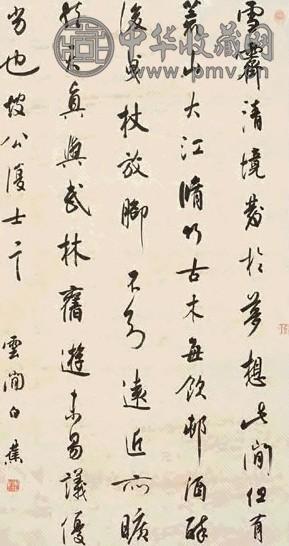 中华收藏网
雪齋清境發於夢想此間但有
荒山大江脩竹古木每飲邨酒醉
後曳杖放腳不知遠近亦曠
然天真與武林舊遊未易議優
劣也坡公復士
雲間白蕉